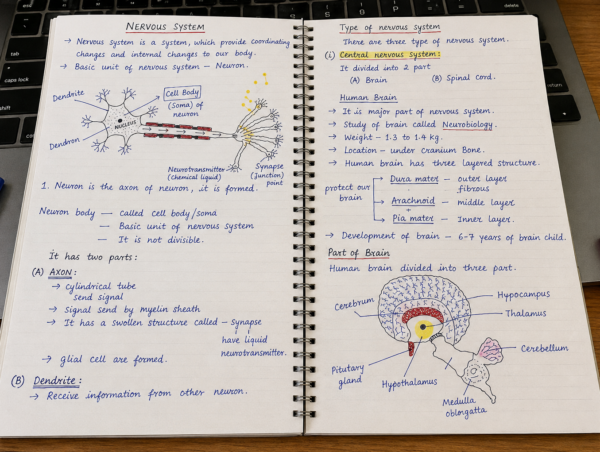 NERVOUS SYSTEM
→ Nervous system is a system, which provide coordinating
changes and internal changes to our body.
→ Basic unit of nervous system – Neuron.
Dendrite
Cell Body
(Soma) of
neuron
NUCLEUS
Dendron
Neurotransmitter
(chemical liquid)
Synapse
(Junction)
point
1. Neuron is the axon of neuron, it is formed.
Neuron body — called cell body/soma
— Basic unit of nervous system
— It is not divisible.
it has two parts:
(A) AXON:
→ cylindrical tube
send signal
→ Signal send by myelin sheath
→ It has a swollen structure called – synapse
have liquid
neurotransmitter.
→ Glial cell are formed.
(B) Dendrite:
→ Receive information from other neuron.
Type of nervous system
There are three type of nervous system.
(i) Central nervous system:
It divided into 2 part
(A) Brain (B) Spinal cord.
Human Brain
→ It is major part of nervous system.
→ Study of brain called Neurobiology.
→ Weight – 1.3 to 1.4 kg.
→ Location – under Cranium Bone.
→ Human brain has three layered structure.
protect our
brain
Dura mater – outer layer
fibrous
Arachnoid – middle layer
+
Pia mater – Inner layer.
→ Development of brain – 6-7 years of brain child.
Part of Brain
Human brain divided into three part.
Cerebrum
Hypocampus
Thalamus
Cerebellum
Pitutary
gland
Hypothalamus
Medulla
oblongatta
caps lock